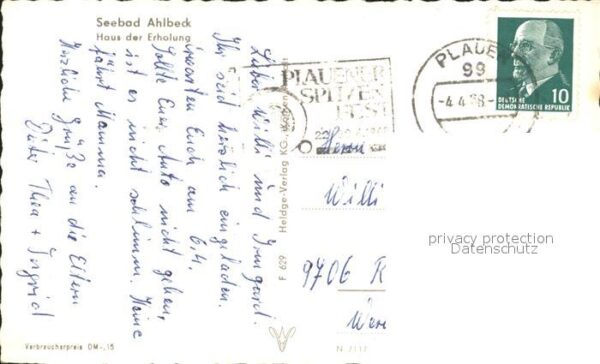 Seebad Ahlbeck
Haus der Erholung
Liebe Willi und Irmgard.
Ihr seid herzlich eingeladen.
erwarten Euch am 6.4.
Sollte Euer Auto nicht gehen,
ist es nicht schlimm. Heine
fährt Mamma.
Herzliche Grüße an die Eltern
Dieter Thea + Ingrid
Verbraucherpreis DM -,15
F 629 Heldge-Verlag KG.
PLAUENER
SPITZEN
FEST
PLAUEN
99
-4.4.68-
DEUTSCHE
DEMOKRATISCHE REPUBLIK
10
Herrn
Willi
9706 R
privacy protection
Datenschutz